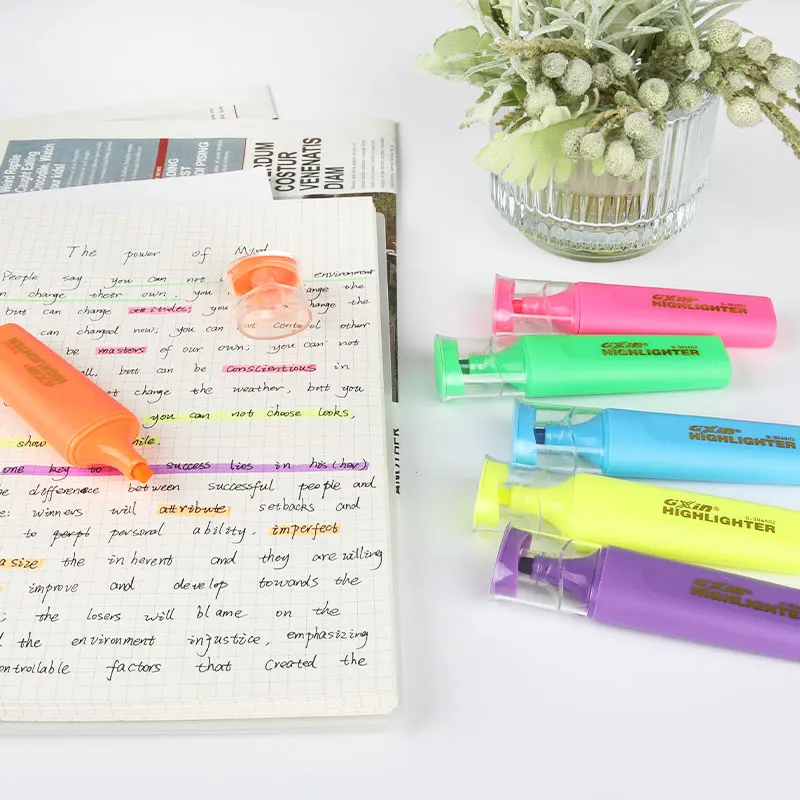 Weird Reptile
Caught Eating
Crocodile. Watch
your kids!
DIAM
VENENATIS
COSTUR
The power of Mind
People say: you can not environment
change their own you change the
but can change attitudes; you change the
can changed now; you can not control other
be masters of our own; you can not
all, but can be conscientious in
not change the weather, but you
you can not choose looks,
show smile.
one key to success lies in his (her)
difference between successful people and
: winners will attribute setbacks and
to personal ability, imperfect
the inherent and they are willing
improve and develop towards the
; the losers will blame on the
the environment injustice, emphasizing
factors that created the
GXin®
HIGHLIGHTER
GXin®
HIGHLIGHTER
G-304602
GXin®
HIGHLIGHTER
G-304602
GXin®
HIGHLIGHTER
G-304602
GXin®
HIGHLIGHTER
G-304602
GXin®
HIGHLIGHTER
ANOTHER